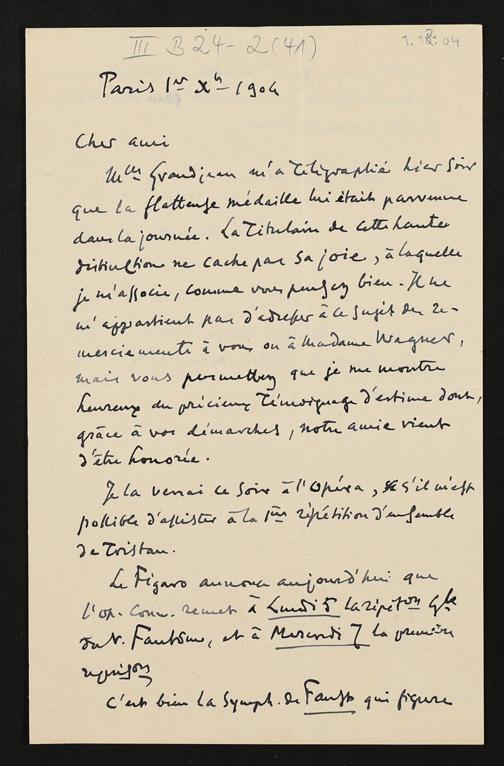 III B 24-2(41)
1.12.04
Paris 1er Xbre 1904
Cher ami
Mlle Grandjean m'a télégraphié hier soir
que la flatteuse médaille lui était parvenue
dans la journée. La titulaire de cette haute
distinction ne cache pas sa joie, à laquelle
je m'associe, comme vous pensez bien. Il ne
m'appartient pas d'adresser à ce sujet des re-
merciements à vous ou à Madame Wagner,
mais vous permettrez que je me montre
heureux du précieux témoignage d'estime dont,
grâce à vos démarches, notre amie vient
d'être honorée.
Je la verrai ce soir à l'Opéra, s'il m'est
possible d'assister à la 1ère répétition d'ensemble
de Tristan.
Le Figaro annonce aujourd'hui que
l'Op. Com. remet à Lundi 5 la répéton Gle
du V. Fantôme, et à Mercredi 7 la première
C'est bien la Symph. de Faust qui figure